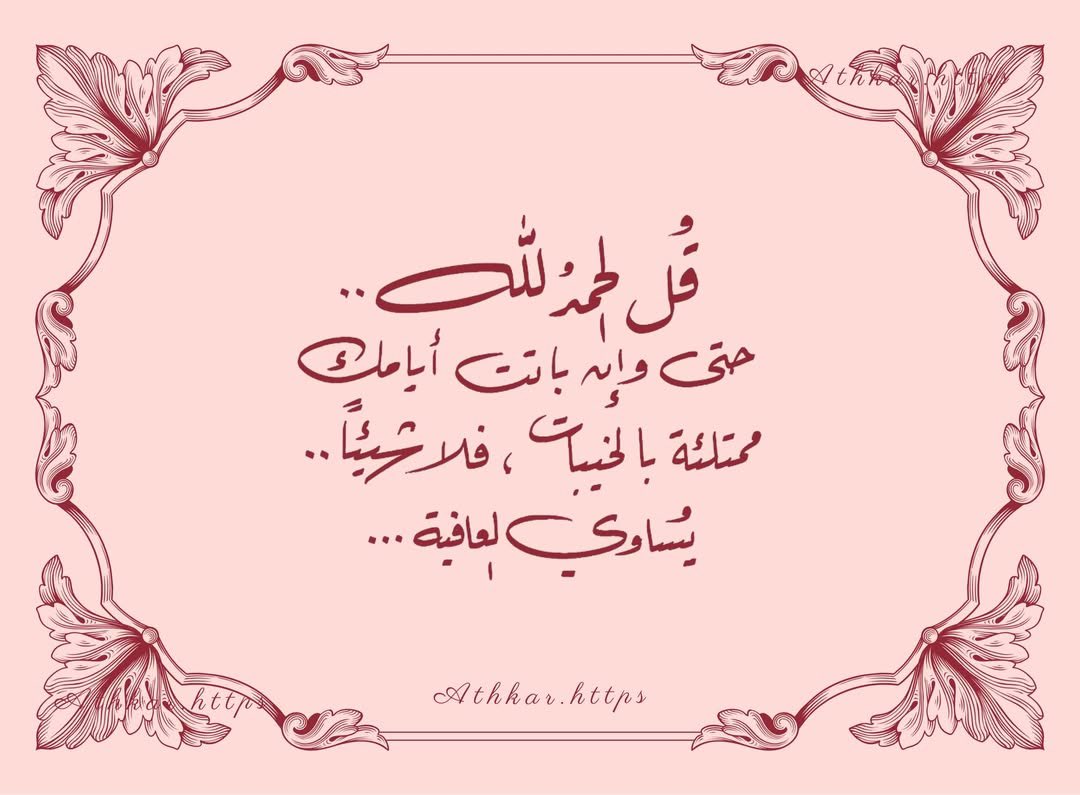 Athkar.https
قُل الحمدُ للّٰه ..
حتى وإن باتت أيامك
ممتلئة بالخيبات ، فلا شيئاً ..
يُساوي العافية ...
Athkar.https
Athkar.https